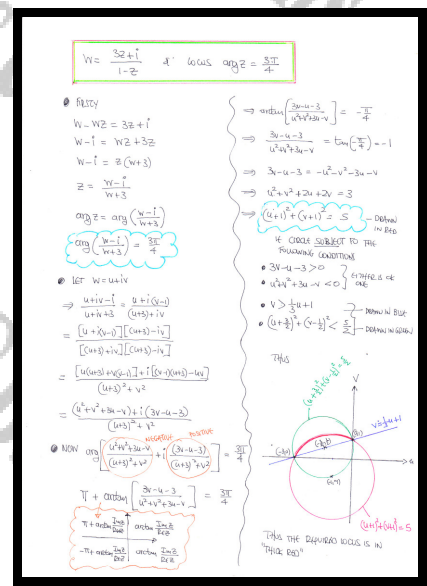 W = (3z+i)/(1-z) & locus arg z = 3π/4
● FIRSTLY
W - WZ = 3z + i
W - i = WZ + 3z
W - i = z(W+3)
z = (W-i)/(W+3)
arg z = arg((W-i)/(W+3))
arg((W-i)/(W+3)) = 3π/4
● LET W = u+iv
⇒ (u+iv-i)/(u+iv+3) = (u+i(v-1))/((u+3)+iv)
= [u+i(v-1)][(u+3)-iv]/[(u+3)+iv][(u+3)-iv]
= [u(u+3)+v(v-1)]+i[(v-1)(u+3)-uv]/((u+3)²+v²)
= (u²+v²+3u-v)+i(3v-u-3)/((u+3)²+v²)
NEGATIVE POSITIVE
● NOW arg[(u²+v²+3u-v)/((u+3)²+v²) + i(3v-u-3)/((u+3)²+v²)] = 3π/4
π + arctan[(3v-u-3)/(u²+v²+3u-v)] = 3π/4
π + arctan Imz/Rez arctan Imz/Rez
-π + arctan Imz/Rez arctan Imz/Rez
⇒ arctan[(3v-u-3)/(u²+v²+3u-v)] = -π/4
⇒ (3v-u-3)/(u²+v²+3u-v) = tan(-π/4) = -1
⇒ 3v-u-3 = -u²-v²-3u+v
⇒ u²+v²+2u+2v = 3
⇒ (u+1)²+(v+1)² = 5 - DRAWN IN RED
IE CIRCLE SUBJECT TO THE
FOLLOWING CONDITIONS
● 3v-u-3 > 0
● u²+v²+3u-v < 0
● v > ⅓u+1 - DRAWN IN BLUE
● (u+3/2)²+(v-½)² < 5/2 - DRAWN IN GREEN
THUS
(u+3/2)²+(v-½)²=5/2
V
v=⅓u+1
(0,1)
(-3,0)
u
(-1,-1)
(u+1)²+(v+1)²=5
THUS THE REQUIRED LOCUS IS IN
"THICK RED"